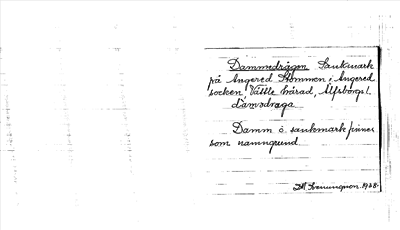 Dammdrågen Sankmark
på Angered Stommen i Angered
socken, Vättle härad, Älfsborgs l.
damdraga
Damm o. sankmark finnes
som namngrund
1928.